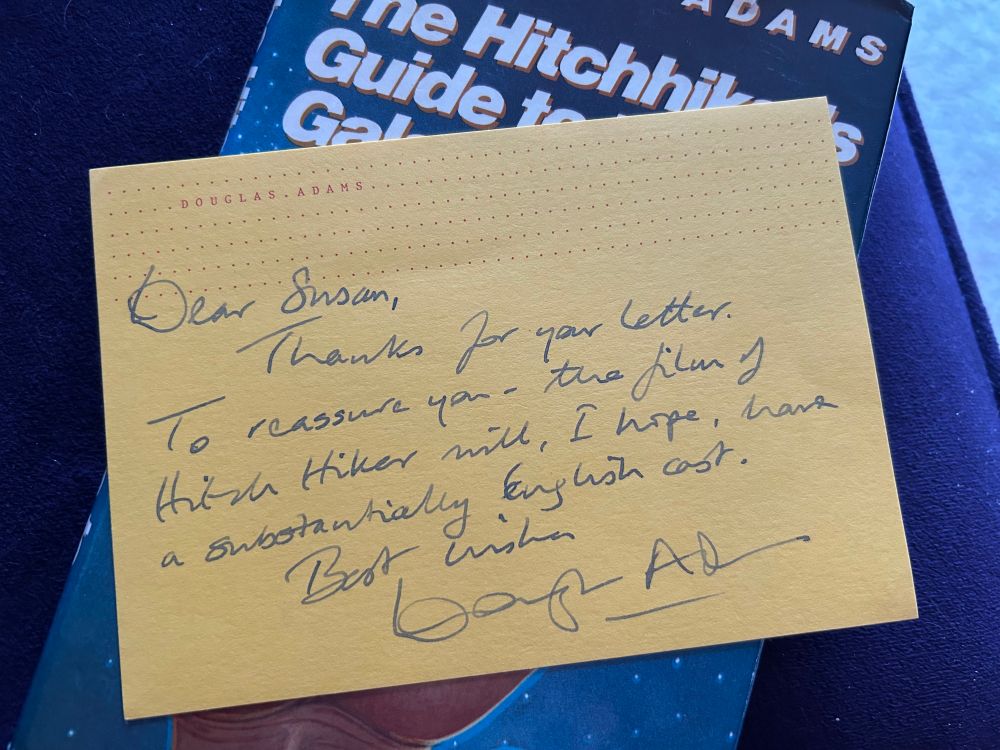 ADAMS
The Hitchhiker's
Guide to
DOUGLAS ADAMS
Dear Susan,
Thanks for your letter.
To reassure you - the film of
Hitch Hiker will, I hope, have
a substantially English cast.
Best wishes
Douglas Adams